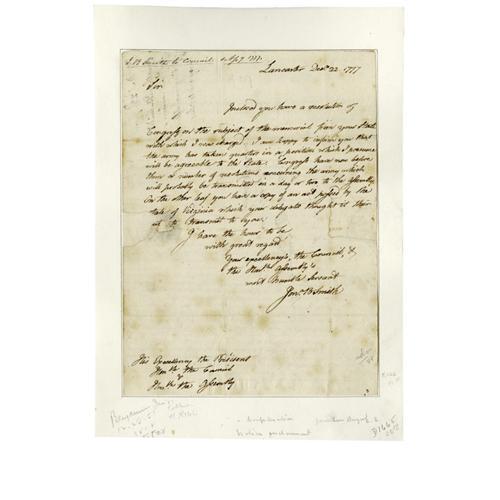 J. B. Smith to Council & Ass'y 1777.
Lancaster Decr. 22. 1777
Sir
Inclosed you have a resolution of
Congress on the subject of the memorial from your State
with which I was charged. I am happy to inform you that
the army has taken quarters in a position which I presume
will be agreeable to the State. Congress have now before
them a number of resolutions concerning the army which
will probably be transmitted in a day or two to the Assembly
On the other leaf you have a copy of an act passed by the
State of Virginia which your delegates thought it their
to transmit to you.
I have the honor to be
with great regard
Your excellency's, the Council, &
the Honble Assembly's
most humble Servant
Jona. B Smith
His Excellency the President
Honble the Council
&
Honble the Assembly